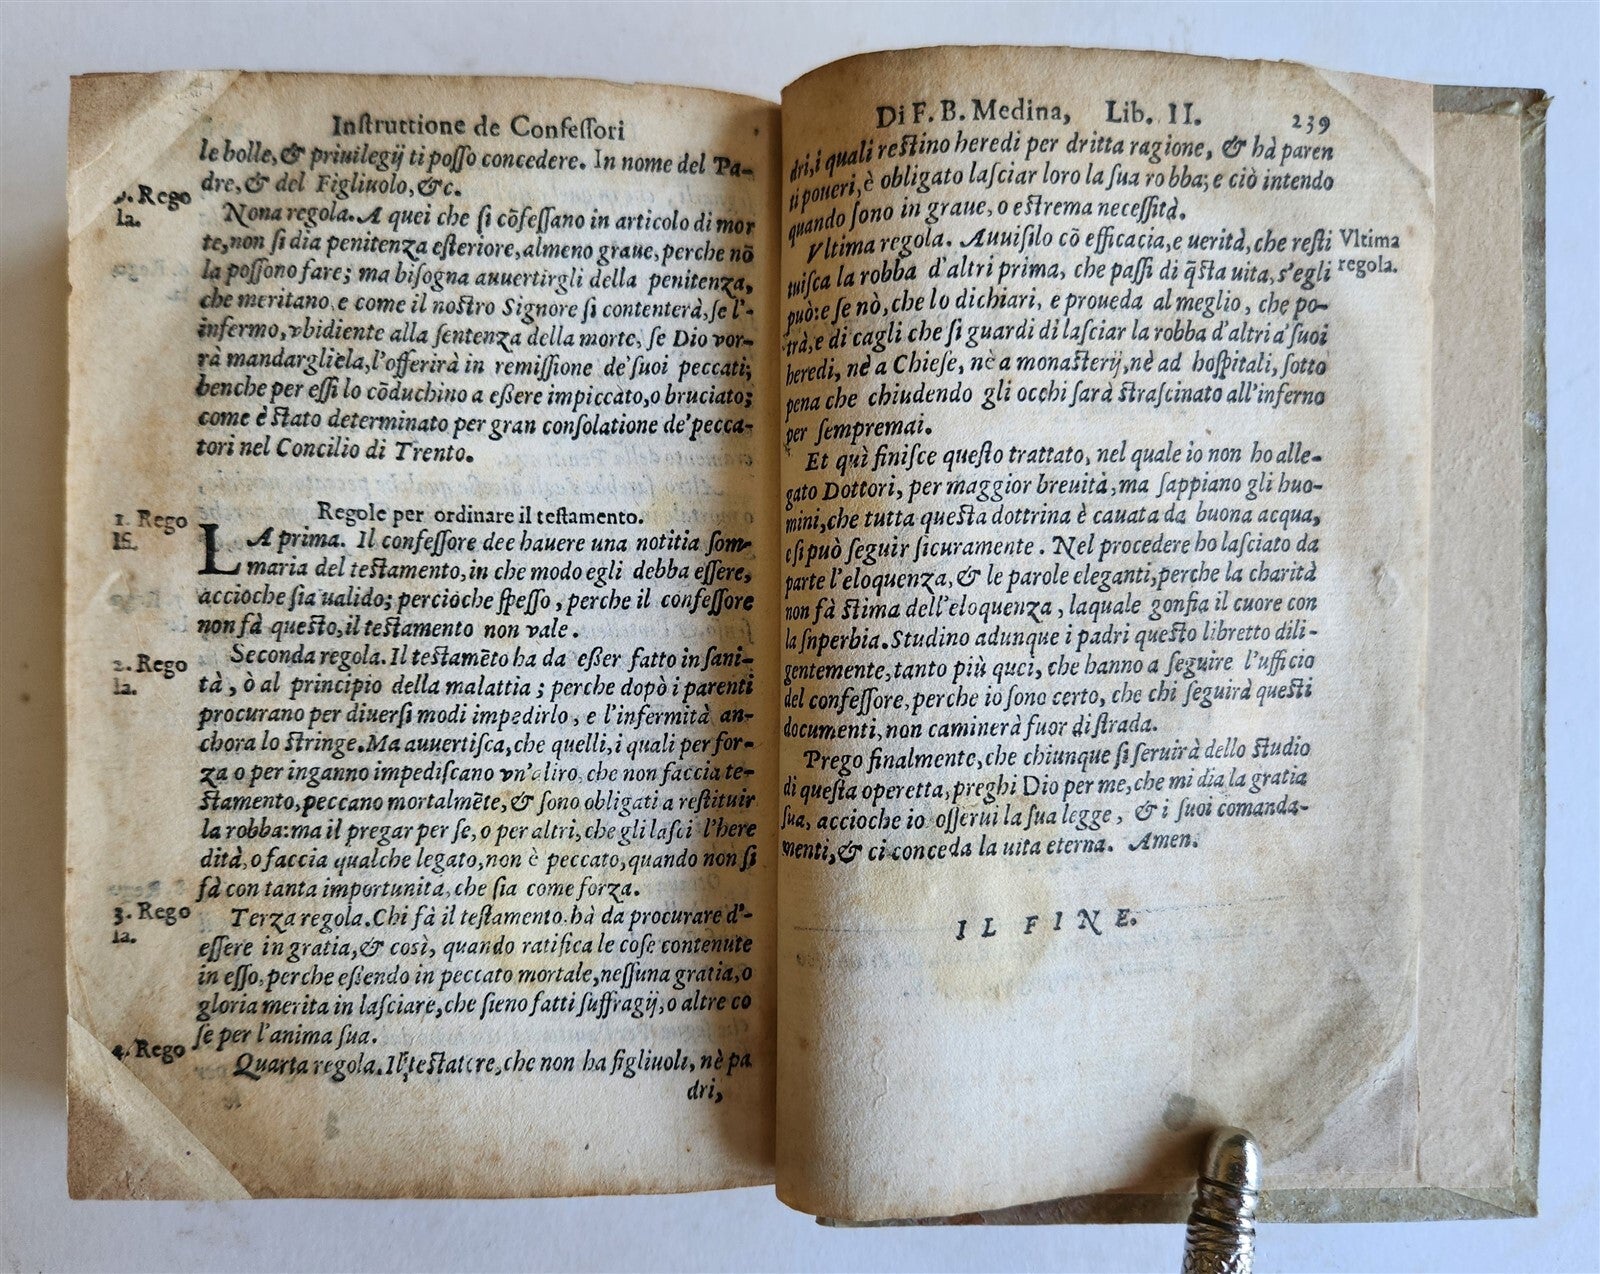 Instruttione de Confessori
le bolle, & priuilegij ti posso concedere. In nome del Pa-
dre, & del Figliuolo, &c.
9. Rego
la.
Nona regola. A quei che si cõfessano in articolo di mor
te, non si dia penitenza esteriore, almeno graue, perche nõ
la possono fare; ma bisogna auuertirgli della penitenza,
che meritano, e come il nostro Signore si contenterà, se l'-
infermo, vbidiente alla sentenza della morte, se Dio vor-
rà mandargliela, l'offerirà in remissione de' suoi peccati;
benche per essi lo cõduchino a eßere impiccato, o bruciato;
come è stato determinato per gran consolatione de' pecca-
tori nel Concilio di Trento.
Regole per ordinare il testamento.
1. Rego
la.
LA prima. Il confessore dee hauere una notitia som-
maria del testamento, in che modo egli debba essere,
accioche sia ualido; percioche spesso, perche il confessore
non fà questo, il testamento non vale.
2. Rego
la.
Seconda regola. Il testamẽto ha da eßer fatto in sani-
tà, ò al principio della malattia; perche dopò i parenti
procurano per diuersi modi impedirlo, e l'infermità an-
chora lo stringe. Ma auuertisca, che quelli, i quali per for-
za o per inganno impediscano vn'altro, che non faccia te-
stamento, peccano mortalmẽte, & sono obligati a restituir
la robba: ma il pregar per se, o per altri, che gli lasci l'here
dità, o faccia qualche legato, non è peccato, quando non si
fà con tanta importunita, che sia come forza.
3. Rego
la.
Terza regola. Chi fà il testamento, hà da procurare d'-
essere in gratia, & così, quando ratifica le cose contenute
in esso, perche essendo in peccato mortale, nessuna gratia, o
gloria merita in lasciare, che sieno fatti suffragij, o altre co
se per l'anima sua.
4. Rego
Quarta regola. Il testatore, che non ha figliuoli, nè pa
dri,
Di F. B. Medina, Lib. II. 239
dri, i quali restino heredi per dritta ragione, & hà paren
ti poueri, è obligato lasciar loro la sua robba; e ciò intendo
quando sono in graue, o estrema necessità.
Vltima
regola.
Vltima regola. Auuisilo cõ efficacia, e uerità, che resti
tuisca la robba d'altri prima, che passi di q̃sta uita, s'egli
può: e se nò, che lo dichiari, e proueda al meglio, che po-
trà, e dicagli che si guardi di lasciar la robba d'altri a' suoi
heredi, nè a Chiese, nè a monasterij, nè ad hospitali, sotto
pena che chiudendo gli occhi sarà strascinato all'inferno
per sempremai.
Et quì finisce questo trattato, nel quale io non ho alle-
gato Dottori, per maggior breuità, ma sappiano gli huo-
mini, che tutta questa dottrina è cauata da buona acqua,
e si può seguir sicuramente. Nel procedere ho lasciato da
parte l'eloquenza, & le parole eleganti, perche la charità
non fà stima dell'eloquenza, laquale gonfia il cuore con
la snperbia. Studino adunque i padri questo libretto dili-
gentemente, tanto più quei, che hanno a seguire l'ufficio
del confessore, perche io sono certo, che chi seguirà questi
documenti, non caminerà fuor di strada.
Prego finalmente, che chiunque si seruirà dello studio
di questa operetta, preghi Dio per me, che mi dia la gratia
sua, accioche io osserui la sua legge, & i suoi comanda-
menti, & ci conceda la uita eterna. Amen.
IL FINE.